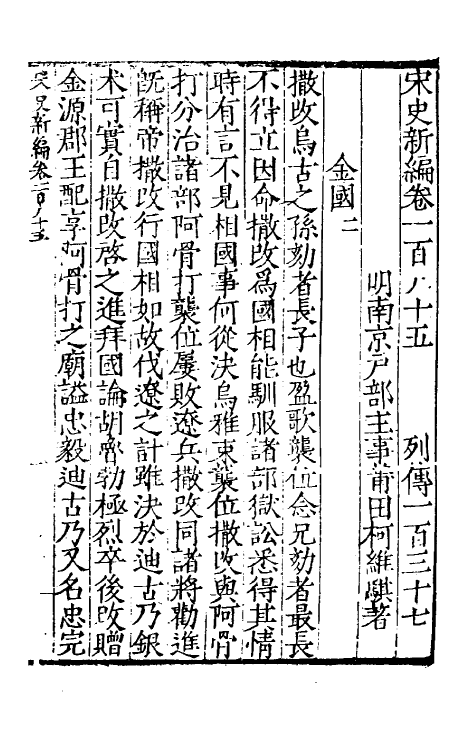 宋史新編卷一百八十五　列傳一百三十七
明南京戸部主事莆田柯維騏著
金國二
撒改烏古之孫劾者長子也盈歌襲位念兄劾者最長
不得立因命撒改爲國相能馴服諸部獄訟悉得其情
時有言不見相國事何從决烏雅束襲位撒改與阿骨
打分治諸部阿骨打襲位屢敗遼兵撒改同諸將勸進
旣稱帝撒改行國相如故伐遼之計雖决於迪古乃銀
术可實自撒改啓之進拜國論胡魯勃極烈卒後改贈
金源郡王配享阿骨打之廟謚忠毅迪古乃又名忠完
宋史新編卷一百八十五